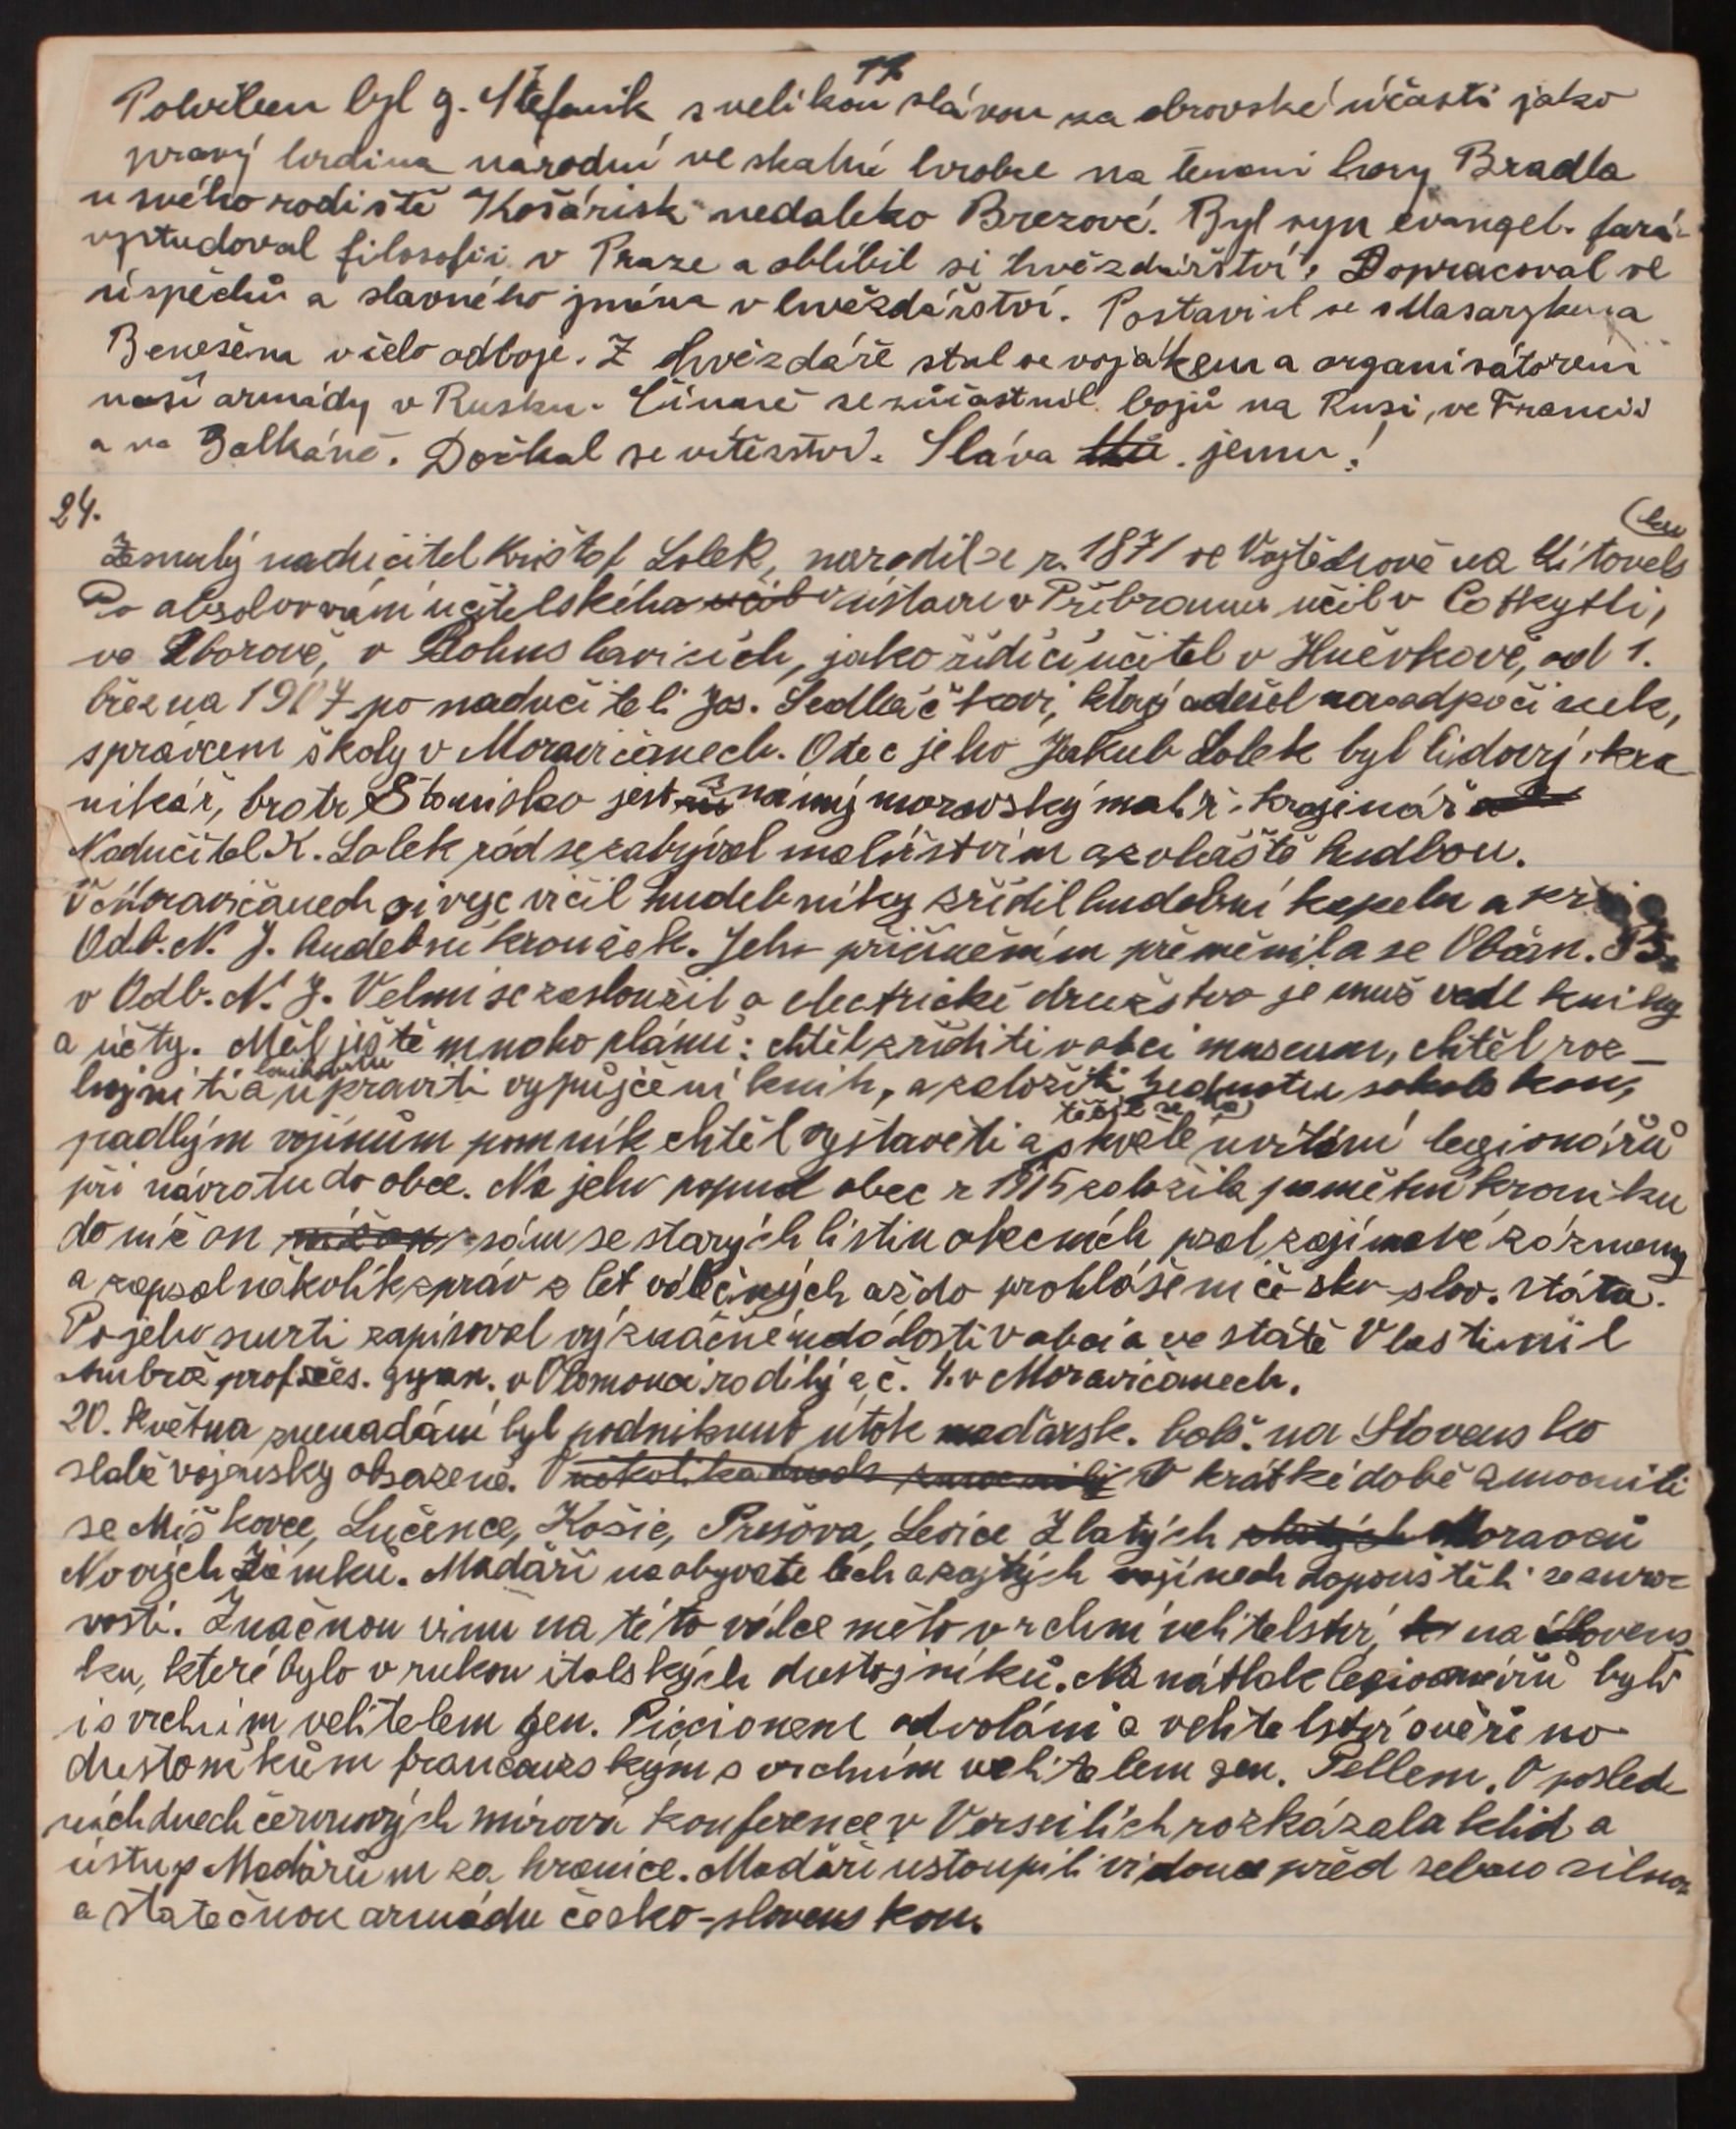 17.
Pohřben byl g. Štefanik s velikou slávou za obrovské účasti jako
pravý hrdina národní ve skalné hrobce na temeni hory Bradla
u svého rodiště Košárisk nedaleko Brezové. Byl syn evangel. fará-
vystudoval filosofii v Praze a oblíbil si hvězdářství. Dopracoval se
úspěchů a slavného jména v hvězdářství. Postavil se s Masarykem a
Benešem v čelo odboje. Z hvězdáře stal se vojákem a organisátorem
naší armády v Rusku. Činně se zúčastnil bojů na Rusi, ve Francii
a na Balkáně. Dočkal se vítězství. Sláva jemu!
24.
Zesnulý nadučitel Krištof Lolek, narodil se r. 1871 ve Vojtěchově na Litovels
(ku
Po absolvování učitelského ústavu v Příbramu učil v Cotkytli,
ve Zborově, v Bohuslavicích, jako řídící učitel v Hněvkově, od 1.
března 1907 po nadučiteli Jos. Sedláčkovi, který odešel na odpočinek,
správcem školy v Moravičanech. Otec jeho Jakub Lolek byl lidový kro
nikář, bratr Stanislav jest známý moravský malíř-krajinář
Nadučitel K. Lolek rád se zabýval malířstvím a zvláště hudbou.
V Moravičanech vycvičil hudebníky zřídil hudební kapelu a při
Odb. N. J. hudební kroužek. Jeho přičiněním přeměnila se Občan. B.
v Odb. N. J. Velmi se zasloužil o electrické družstvo jemuž vedl knihy
a účty. Měl ještě mnoho plánů: chtěl zříditi v obci museum, chtěl roz-
hojniti a upraviti vypůjčení knih, a založiti Jednotu sokolskou,
knihovnu
padlým vojínům pomník chtěl vystavěti a skvělé uvítání legionářů
těšil se na
při návratu do obce. Na jeho popud obec r 1915 založila pamětní kroniku
do níž on sám se starých listin obecních psal zajímavé záznamy
a zapsal několik zpráv z let válečných až do prohlášení če-sko-slov. státu.
Po jeho smrti zapisoval význačné události v obci a ve státě Vlastimil
Ambrož prof. čes. gymn. v Olomouci rodilý z č. 4. v Moravičanech.
20. května znenadání byl podniknut útok maďarsk. bolš. na Slovensko
slabě vojensky obsazené. V několika dnech zmocnily V krátké době zmocnili
se Miškovce, Lučence, Košic, Prešova, Levice Zlatých Moravců
Nových Zámků. Maďaři na obyvatelech a zajatých vojínech dopouštěli se suro-
vosti. Značnou vinu na této válce mělo vrchní velitelství na Slovens
ku, které bylo v rukou italských důstojníků. Na nátlak legionářů byli
i s vrchním velitelem gen. Piccionem odvoláni a velitelství svěřeno
dustoníkům francouzským s vrchním velitelem gen. Pellem. V posled-
ních dnech červnových mírová konference v Verseilích rozkázala klid a
ústup Maďarům za hranice. Maďaři ustoupili vidouce před sebou silnou
a statečnou armádu česko-slovenskou.